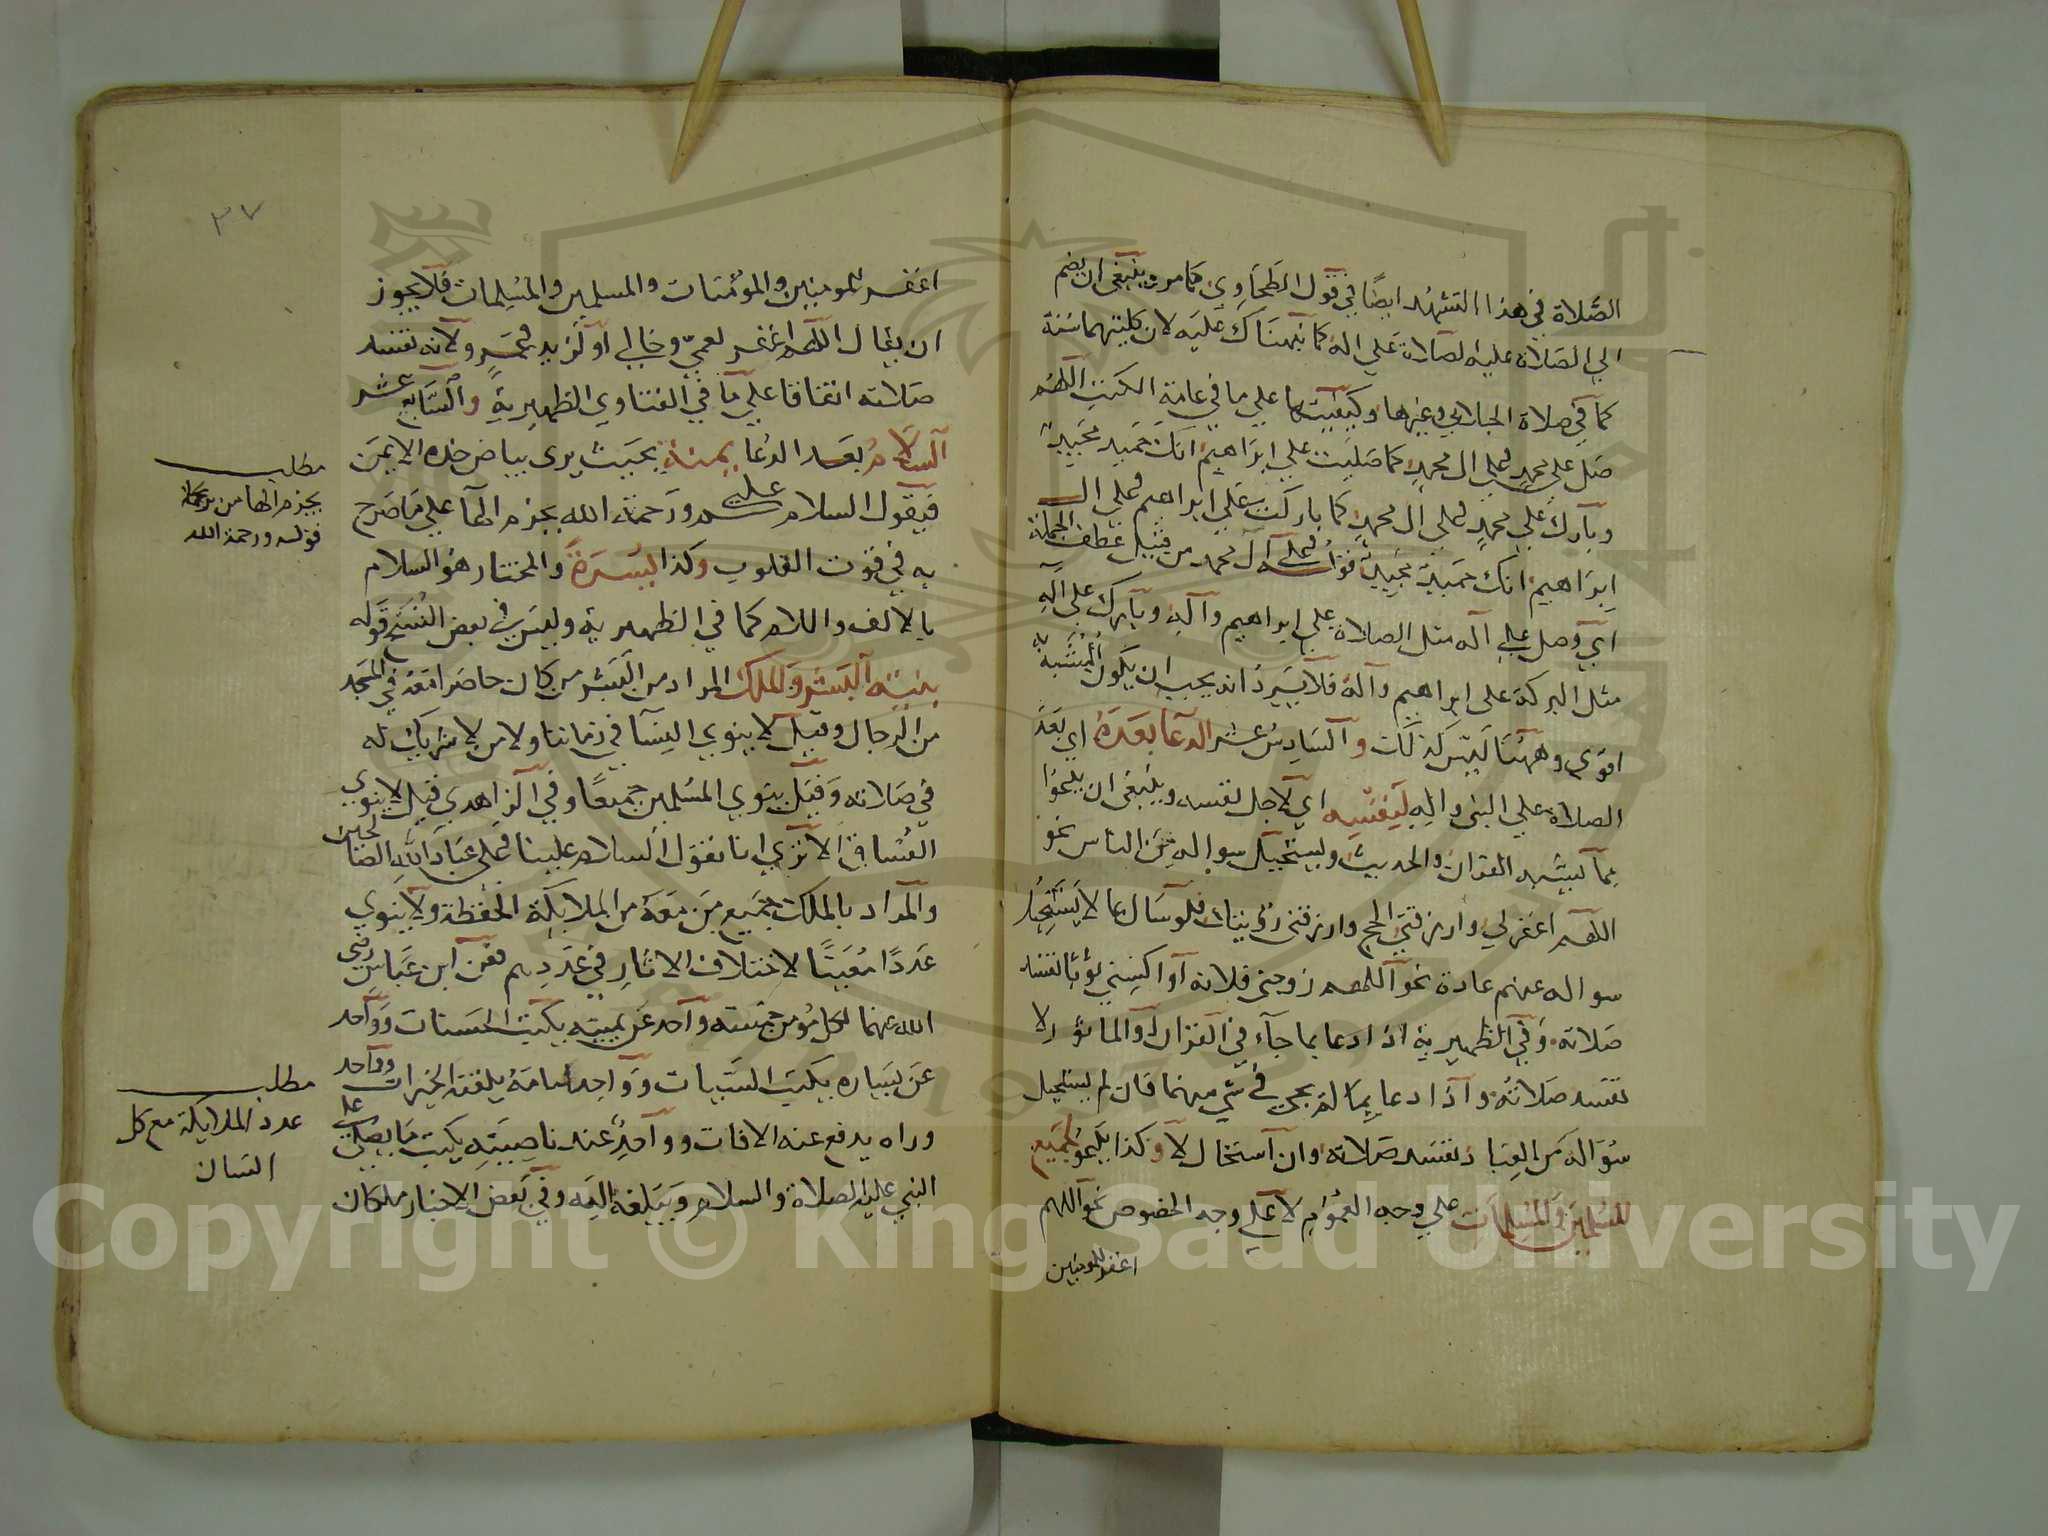 الصلاة في هذا التشهد ايضا في قول الطحاوي كما مر وينبغي ان يضم
الي الصلاة عليه الصلاة علي اله كما نبهناك عليه لان كليتهما سنة
كما في صلاة الجلابي وغيرها وكيفيتها علي ما في عامة الكتب اللهم
صل علي محمد وعلي ال محمد كما صليت علي ابراهيم انك حميد مجيد
وبارك علي محمد وعلي ال محمد كما باركت علي ابراهيم وعلي ال
ابراهيم انك حميد مجيد فقوله وعلي آل محمد من قبيل عطف الجملة
اي وصل علي اله مثل الصلاة علي ابراهيم وآله وبارك علي آله
مثل البركة علي ابراهيم وآله فلا يرد انه يجب ان يكون المشبه به
اقوي وههنا ليس كذلك والسادس عشر الدعا بعده اي بعد
الصلاة علي النبي واله لنفسه اي لاجل نفسه وينبغي ان يدعوا
بما يشبه القران والحديث ويستحيل سواله من الناس نحو
اللهم اغفر لي وارزقني الحج وارزقني رؤيتك فلو سال بما لا يستحيل
سواله عنهم عادة نحو اللهم زوجني فلانة او اكسني ثوبا تفسد
صلاته وفي الظهيرية اذا دعا بما جآء في القران او الماثور لا
تفسد صلاته واذا دعا بما لم يجي في شي منهما فان لم يستحيل
سؤاله من العباد تفسد صلاته وان استحال لا وكذا يدعو لجميع
المسلمين والمسلمات علي وجه العموم لا علي وجه الخصوص نحو اللهم
اغفر للمومنين
٣٧
اغفر للمومنين والمؤمنات والمسلمين والمسلمات فلا يجوز
ان يقال اللهم اغفر لعمي وخالي او لزيد وعمرو لانه تفسد
صلاته اتفاقا علي ما في الفتاوي الظهيرية والسابع عشر
السلام بعد الدعا يمنة بحيث يري بياض خده الايمن
فيقول السلام عليكم ورحمة الله بجزم الها علي ما صرح
به في قوت القلوب وكذا يسرة والمختار هو السلام
بالالف واللام كما في الظهيرية وليس في بعض النسخ قوله
بنية البشر والملك المراد من البشر من كان حاضرا معه في المسجد
من الرجال وقيل لا ينوي النسآ في زماننا ولا من لا شريك له
في صلاته وقيل ينوي المسلمين جميعا وفي الزاهدي قيل لا ينوي
الفساق الا تري انا نقول السلام علينا وعلي عباد الله الصالحين
والمراد بالملك جميع من معه من الملايكة الحفظة ولا ينوي
عددا معينا لاختلاف الاثار في عددهم فعن ابن عباس رضي
الله عنهما لكل مؤمن خمسة واحد عن يمينه يكتب الحسنات وواحد
عن يساره يكتب السيات وواحد امامه يلقنه الخيرات وواحد
وراه يدفع عنه الافات وواحد عند ناصيته يكتب ما يصلي علي
النبي عليه الصلاة والسلام ويبلغه اليه وفي بعض الاخبار ملكان
مطلب
بجزم الها من
قوله ورحمة الله
مطلب
عدد الملايكة مع كل
انسان
Copyright © King Saud University